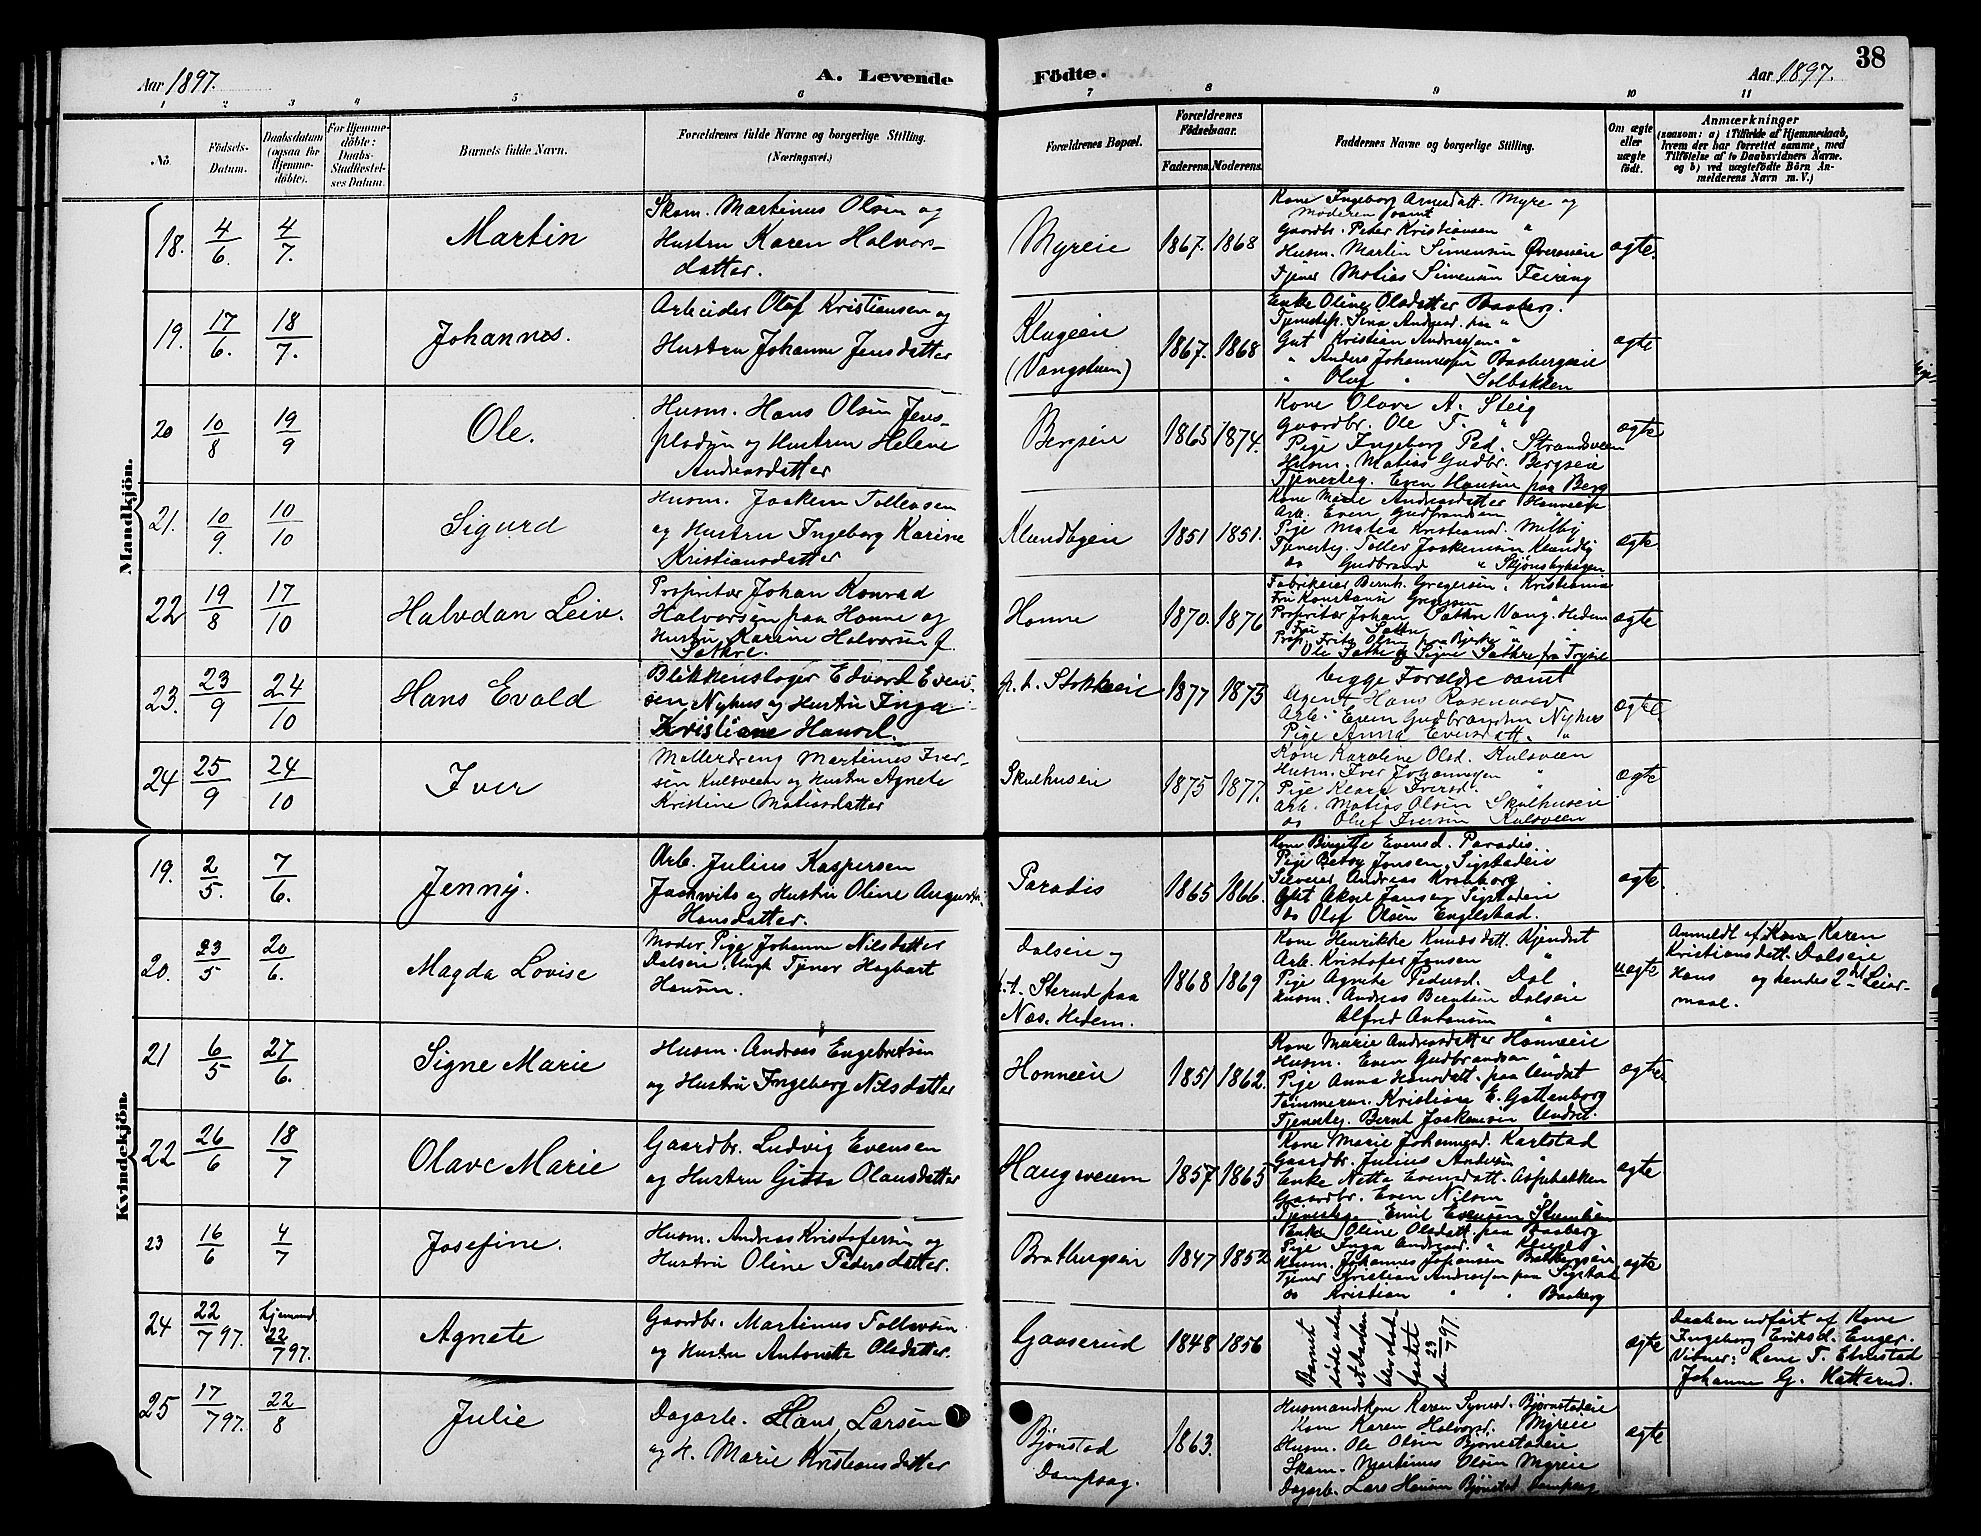 Aar 1897.
A. Levende
Födte.
Aar 1897.
38
1 2 3 4 5 6 7 8 9 10 11
No.
Födsels-
Datum.
Daabsdatum
(ogsaa for
Hjemme-
döbte).
For Hjemme-
döbte:
Daabs-
Stadfæstel-
ses Datum.
Barnets fulde Navn.
Forældrenes fulde Navne og borgerlige Stilling.
(Næringsvei.)
Forældrenes Bopæl.
Forældrenes
Födselsaar.
Faderens.
Moderens.
Faddernes Navne og borgerlige Stilling.
Om ægte
eller
uægte
födt.
Anmærkninger
(saasom: a) i Tilfælde af Hjemmedaab,
hvem der har forrettet samme, med
Tilföielse af to Daabsvidners Navne.
og b) ved uægtefödte Börn An-
melderens Navn m. V.)
Mandkjön.
18.
4/6.
4/7.
Martin
Skom. Martinus Olsen og
Hustru Karen Halvors-
datter.
Myreie
1867.
1868
Kone Ingeborg Arnesdatt. Myre og
Moderen samt
Gaardbr. Peter Kristiansen "
Husm. Martin Simensen Øvereneie
Tjener Matias Simensen Feiring
ægte.
19.
17/6.
18/7.
Johannes.
Arbeider Olaf Kristiansen og
Hustru Johanne Jensdatter
Klugeie
(Vangsteen)
1867.
1868
Enke Oline Olsdatter Baaberg.
Tjenestep. Sina Andersd. paa "
Gut Kristian Andersen "
" Anders Johannessen Baabergeie
" Olaf " Solbakken
ægte
20
10/8
19/9
Ole.
Husm. Hans Olsen Jens-
pladsen og Hustru Helene
Andreasdatter
Bergseie
1865
1874.
Kone Olave A. Steig
Gaardbr. Ole T. "
Pige Ingeborg Ped. Strandsveen
Husm. Matias Gudbr. Bergseie
Tjenesteg. Even Hansen paa Berg
ægte
21.
10/9.
10/10
Sigurd
Husm. Joakim Tollevsen
og Hustru Ingeborg Karine
Kristiansdatter
Klundbyeie
1851
1851.
Kone Marie Andreasdatter Honneeie
Arb. Even Gudbrandsen "
Pige Matea Kristiansd. Melby
Tjenesteg. Tollev Joakimsen Klundby
do Gudbrand " Skjønsbyhagen
ægte
22
19/8
17/10
Halvdan Leiv.
Proprietær Johan Konrad
Halvorsen paa Honne og
Hustru Karine Halvorsen f.
Sæthre.
Honne
1870.
1876
Fabrikeier Bernh. Gregersen, Kristiania
Fru Konstanse Gregersen "
Proprietær Johan Sæthre Vang. Hedem
Fru Sæthre "
Prop. Fritz Olsen paa Bjerke "
Ole Sæthre og Signe Sæthre fra Trysil
ægte
23.
23/9
24/10
Hans Evald
Blikkenslager Edvard Even-
sen Nyhus og Hustru Inga
Kristiane Hansd.
p. t. Stokkeeie
1877
1873
begge Forældre samt
Agent Hans Rosenvold
Arb. Even Gudbrandsen Nyhus
Pige Anna Evensdatt. "
ægte.
24
25/9
24/10
Iver
Møllerdreng Martinius Iver-
sen Kulsveen og Hustru Agnete
Kristine Matiasdatter
Skulhuseie
1875
1877.
Kone Karoline Olsd. Kulsveen
Husm. Iver Johannesen "
Pige Klara Iversd. "
Arb. Matias Olsen Skulhuseie
do Oluf Iversen Kulsveen
ægte
Kvindekjön.
19.
2/5.
7/6.
Jenny.
Arb. Julius Kaspersen
Jachwitz og Hustru Oline Augusta
Hansdatter.
Paradis
1865
1866.
Kone Birgitte Evensd. Paradis.
Pige Betsy Jonsen, Sigstadeie
Sliverei Andreas Kraabøg
Gut Aksel Jansen Sigstadeie
do Olaf Olsen Englestad.
ægte.
20.
23/5
20/6.
Magda Lovise
Moder Pige Johanne Nilsdatter
Dalseie. Ungk. Tjener Hagbart
Hansen.
Dalseie og
p. t. Sterud paa
Næs. Hedem.
1868
1869
Kone Henrikke Knudsdatt. Kjendset
Arb. Kristofer Jonsen "
Pige Agnethe Pedersd. Dal
Husm. Andreas Berntsen Dalseie
Alfred Antonsen "
uægte
Anmeldt af Kone Karen
Kristiansdatt. Dalseie
Hans og hendes 2det Leier-
maal.
21
6/5
27/6.
Signe Marie
Husm. Andreas Engebretsen
og Hustru Ingeborg Nilsdatter
Honneeie
1851
1862.
Kone Marie Andreasdatter Honneeie
Husm. Even Gudbrandsen "
Pige Anna Hansdatt. paa Undset
Tømmerm. Kristian E. Gøttenborg
Tjenesteg. Bernt Joakimsen Undset.
ægte
22
26/6
18/7
Olave Marie
Gaardbr. Ludvig Evensen
og Hustru Gitta Olausdatter
Haugsveen
1857
1865
Kone Marie Johannesd. Karlstad
Gaardbr. Julius Andersen "
Enke Netta Evensdatt. Aspebakken
Gaardbr. Even Nilsen "
Tjenesteg. Emil Evensen Stenslien
ægte
23
16/6
4/7
Josefine.
Husm. Andreas Kristofersen og
Hustru Oline Pedersdatter.
Bratbergseie
1847
1852
Enke Oline Olsdatt. paa Baaberg
Pige Inga Andersd. "
Husm. Johannes Johansen Bratbergseie
Tjener Kristian Andersen paa Sigstad
do Kristian " " Baaberg
ægte
24
22/7 97.
Hjemmed.
22/7 97.
Agnete
Gaardbr. Martinus Tollevsen
og Hustru Antonette Olsdatter.
Gaaserud
1848
1856
Barnet
døde uden
at Daaden
blev stad-
fæstet
den 23/7 97.
ægte
Daaben udført af Kone
Ingeborg Eriksd. Enger.
Vidner: Lene T. Elvestad
Johanne G. Hatterud.
25
17/7 97.
22/8
Julie
Dagarb. Hans Larsen
og H. Marie Kristiansdatter
Bjønstad
Dampsag.
1863.
Husmandskone Karen Syversd. Bjørnstadeie
Kone Karen Halvorsd. Myreie
Husm. Ole Olsen Bjørnstadeie
Skom. Martinus Olsen Myreie
Dagarb. Lars Hansen Bjønstad Dampsag
ægte